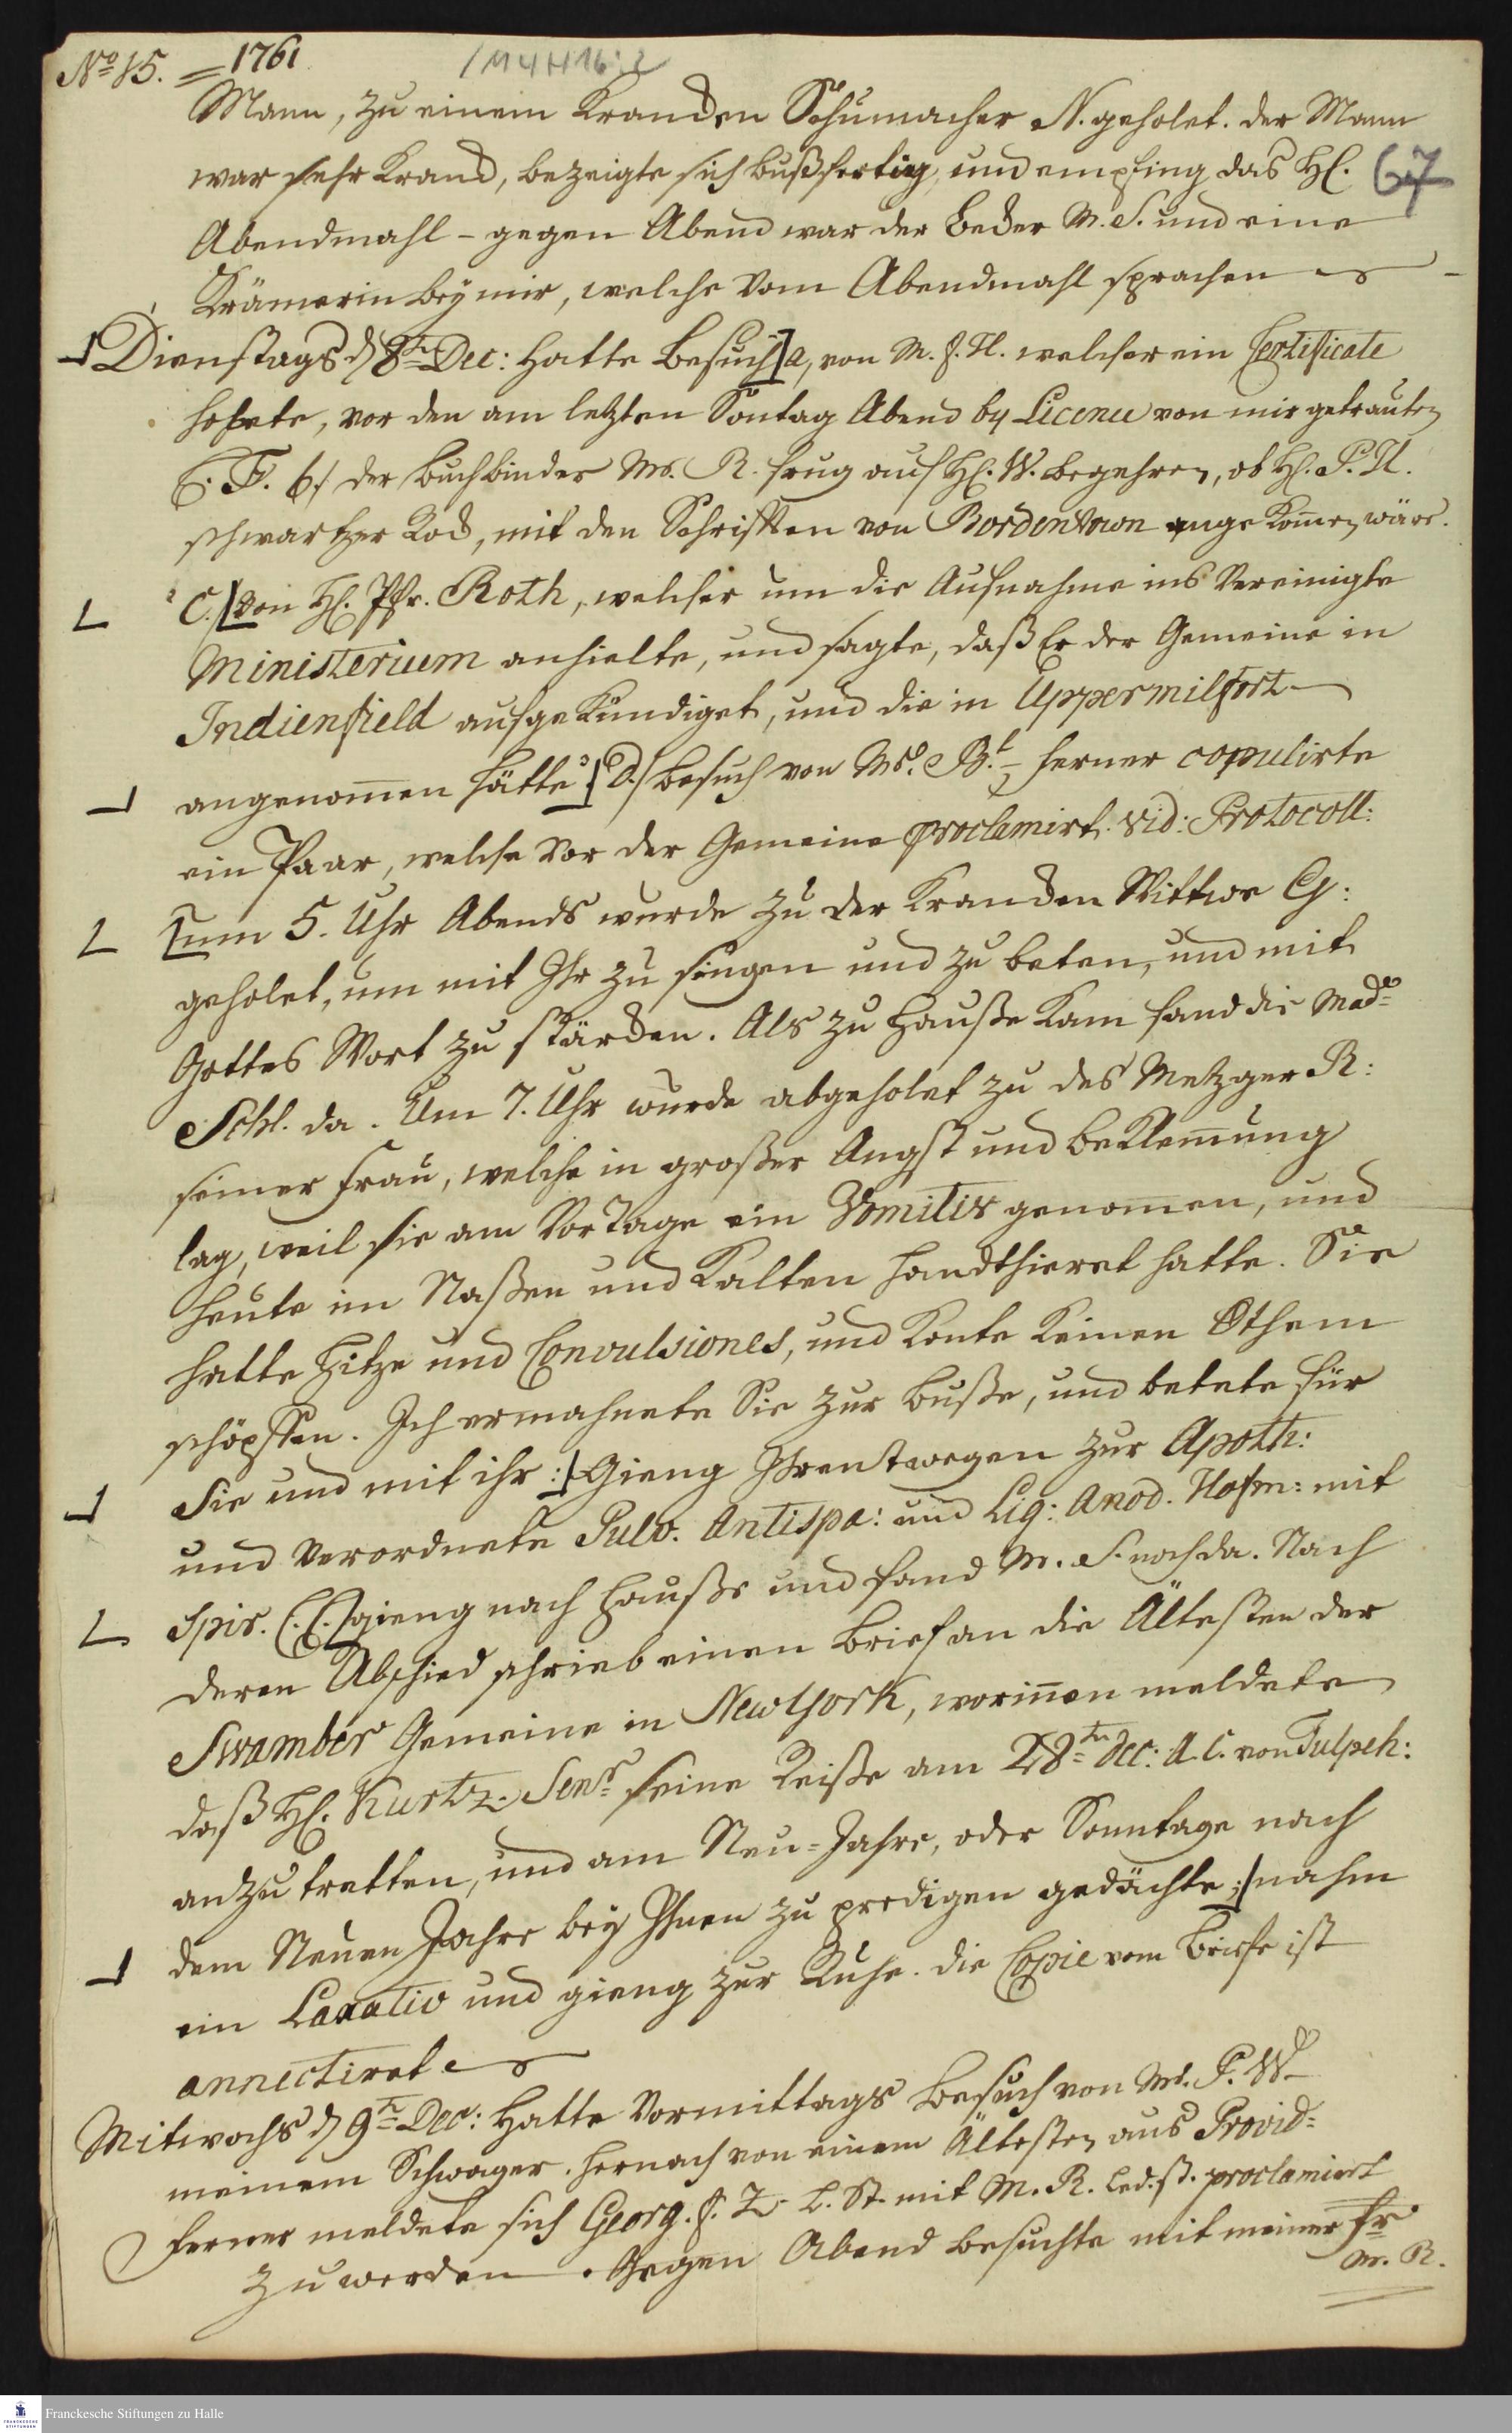 No 15. = 1761
/M 4 H 16 : 2
67
Mann, zu einem Krancken Schumacher N. geholet. der Mann
war sehr Kranck, bezeigte sich bußfertig, und empfing das Hl.
Abendmahl – gegen Abend war der Becker M. S. und eine
Krämerin bey mir, welche vom Abendmahl sprachen –
Dienstags d 8t Dec: hatte Besuch] a, von M. f. H. welcher ein Certificate
hohlte, vor den am letzten Sontag Abend by Licence von mir getrauten
C. F. b./ der Buchbinder Mr. R. frug auf H. W. begehren, ob H. P. H.
schwartzer Rock, mit den Schrifften von Bordentown angekom̅en wäre.
C./ [von H. Pfr. Roth, welcher um die Aufnahme ins Vereinigte
Ministerium anhielte, und sagte, daß Er der Gemeine in
Indienfield aufgekündiget, und die in Uppermilfort
angenom̅en hätte] D./ Besuch von Mr. B. – ferner copulirte
ein Paar, welche vor der Gemeine proclamirt. vid: Protocoll:
[um 5. Uhr Abends wurde zu der Krancken Wittwe G:
geholet, um mit Ihr zu singen und zu beten, und mit
Gottes Wort zu stärcken. Als zu Hauße kam fand die Made
Schl. da. Um 7. Uhr wurde abgeholet zu des Metzger R:
seiner Frau, welche in großer Angst und Beklem̅ung
lag, weil sie am Vor Tage ein Vomitiv genom̅en, und
heute im Naßen und Kalten handthieret hatte. Sie
hatte Hitze und Convulsiones, und konte keinen Othem
schöpffen. Ich ermahnete Sie zur Buße, und betete für
Sie und mit ihr :] Gieng Ihrentwegen zur Apoth:
und verordnete Pulv. Antispa: und Liq: Anod. Hofm: mit
Spir. C. C. [gieng nach Hauße und fand M. S. noch da. Nach
deren Abschied schrieb einen Brief an die Ältesten der
Swamber Gemeine in Newyork, worin̅en meldete
daß H. Kurtz Senr seine Reiße am 28tn dec: a. c. von Tulpeh:
anzutretten, und am Neu-Jahre, oder Sonntage nach
dem Neuen Jahre bey Ihnen zu predigen gedächte;] nahm
ein Laxativ und gieng zur Ruhe. die Copie vom Briefe ist
annectiret
Mitwochs d 9t Dec: Hatte Vormittags Besuch von Mr. P. W
meinem Schwager. hernach von einem Ältesten aus Provid=
ferner meldete sich Georg. f. Z. L. St. mit M. R. led. st. proclamirt
zu werden. Gegen Abend besuchte mit meiner Fr
M. R.
Franckesche Stiftungen zu Halle